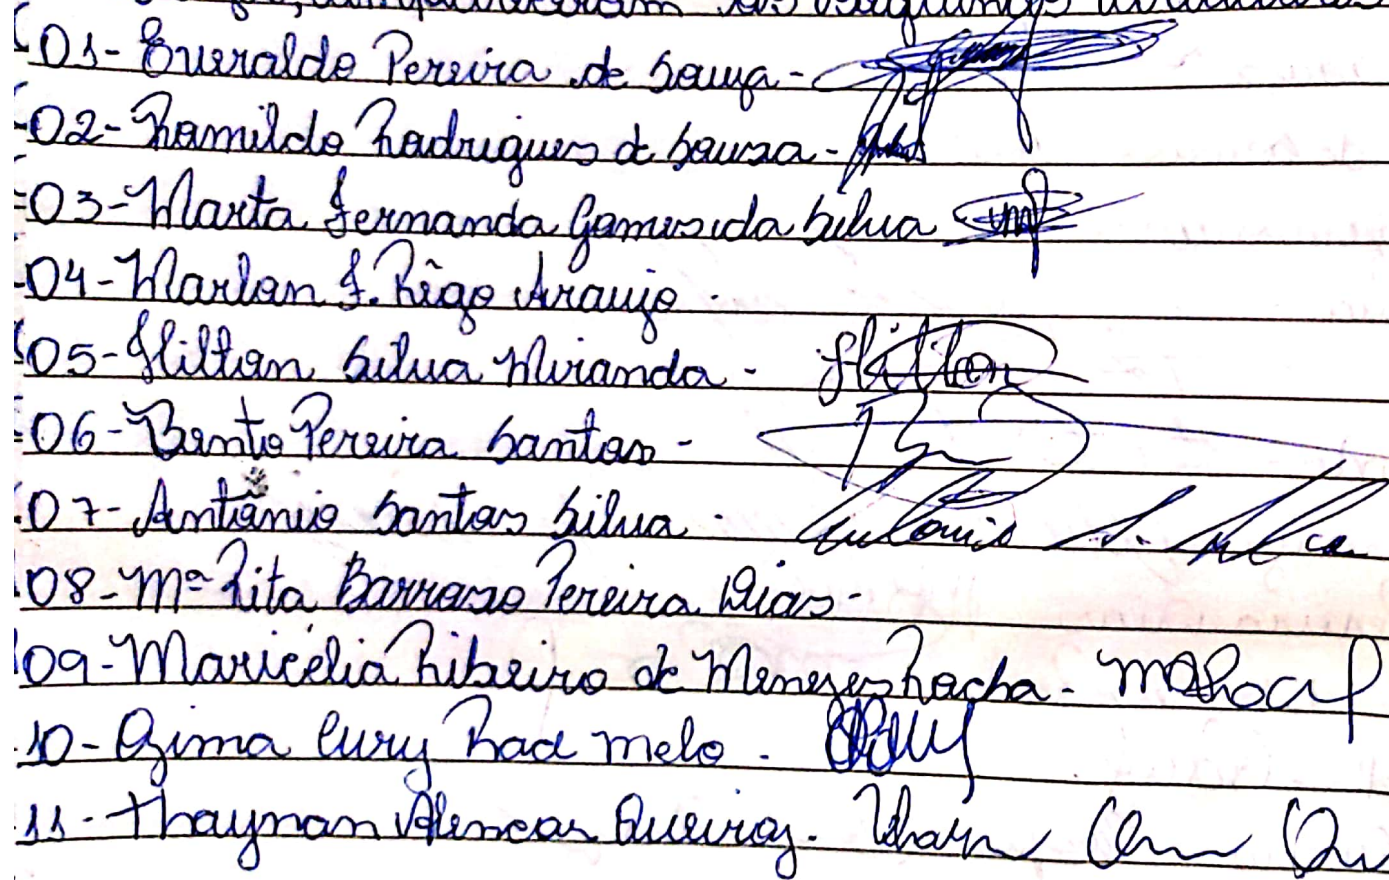 compareceram os seguintes
01- Everaldo Pereira de Souza -
02- Ramildo Rodrigues de Sousa -
03- Marta Fernanda Gomes da Silva
04- Marlan F. Rêgo Araujo .
05- Hilttan Silva Miranda - Hilttan
06- Bento Pereira Santos -
07- Antônio Santos Silva . Antonio S. Silva
08- Mª Rita Barroso Pereira Dias -
09- Maricélia Ribeiro de Menezes Rocha -
10- Ozima Cury Rad Melo .
11- Thaynan Alencar Queiroz .